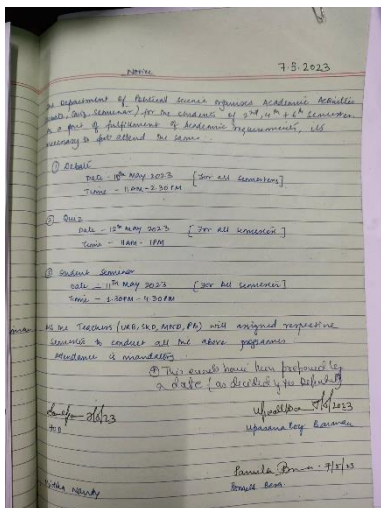 Notice 7.5.2023
Department of Political Science organises Academic Activities
Quiz, Seminar) for the students of 2nd, 4th & 6th Semester
As a part of fulfilment of Academic requirements, its
necessary to attend the same.
① Debate
Date - May 2023 [For all Semesters]
Time - 11AM-2.30PM
② Quiz
Date - 12th May 2023 [For all semester]
Time - 11AM - 1PM
③ Student Seminar
Date - 11th May 2023 [For all semester]
Time - 1.30PM - 4.30PM
All the Teachers (URB, SKD, MND, PB) will assigned respective
Semester to conduct all the above programmes
Attendance is mandatory.
This events have been
date (as decided by the
7/5/23 2023
Upasana Roy Barman
7/5/23
Nandy